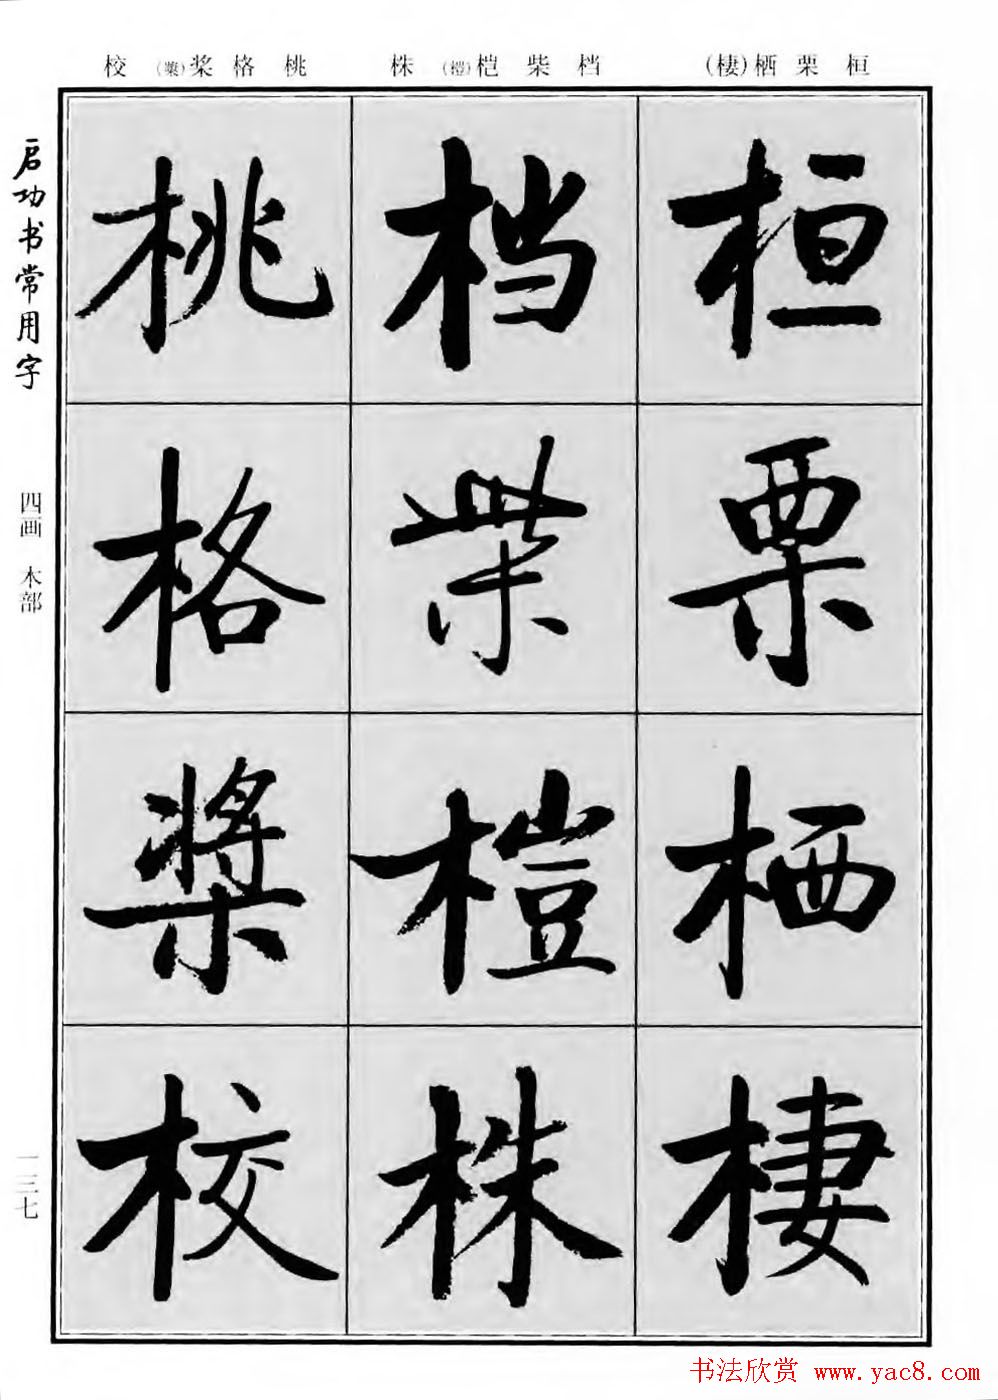 桓栗栖(棲)
档柴桤(榿)株
桃格桨(槳)校
启功书常用字
四画 木部
一三七
桓
栗
栖
棲
档
柴
榿
株
桃
格
槳
校
书法欣赏 www.yac8.com